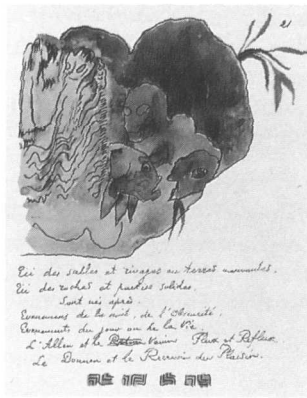 21
Ici des sables et rivages ou terres mouvantes.
Ici des roches et parties solides.
Sont nés après.
Evenemens de la nuit, de l'Obscurité.
Evenements du jour ou de la Vie
L'Aller et le Venir Flux et Reflux
Le Donner et le Recevoir du Plaisir.